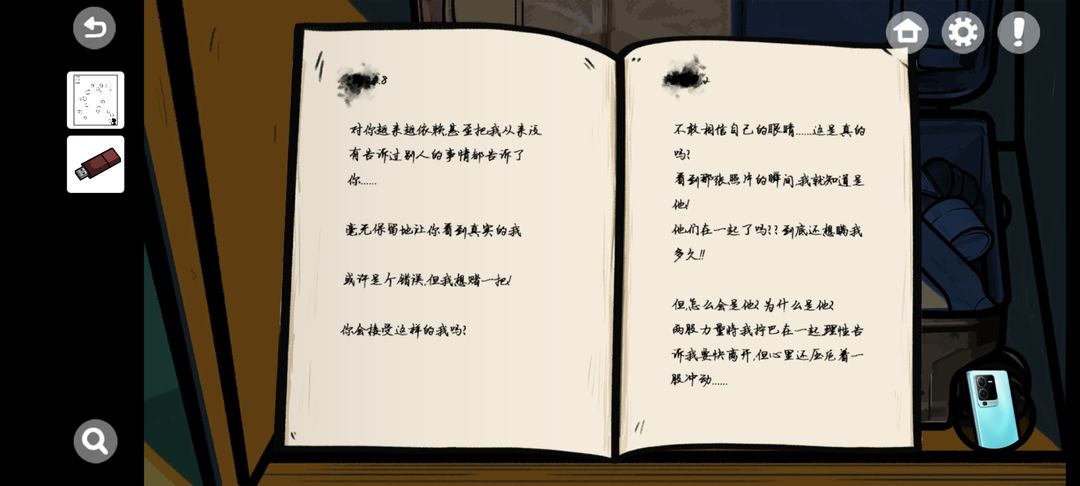 8
对你越来越依赖,甚至把我从来没
有告诉过别人的事情都告诉了
你……
毫无保留地让你看到真实的我
或许是个错误,但我想赌一把!
你会接受这样的我吗?
2
不敢相信自己的眼睛……这是真的
吗?
看到那张照片的瞬间,我就知道是
他!
他们在一起了吗??到底还想瞒我
多久!!
但,怎么会是他?为什么是他?
两股力量将我拧巴在一起,理性告
诉我要快离开,但心里还压抑着一
股冲动……